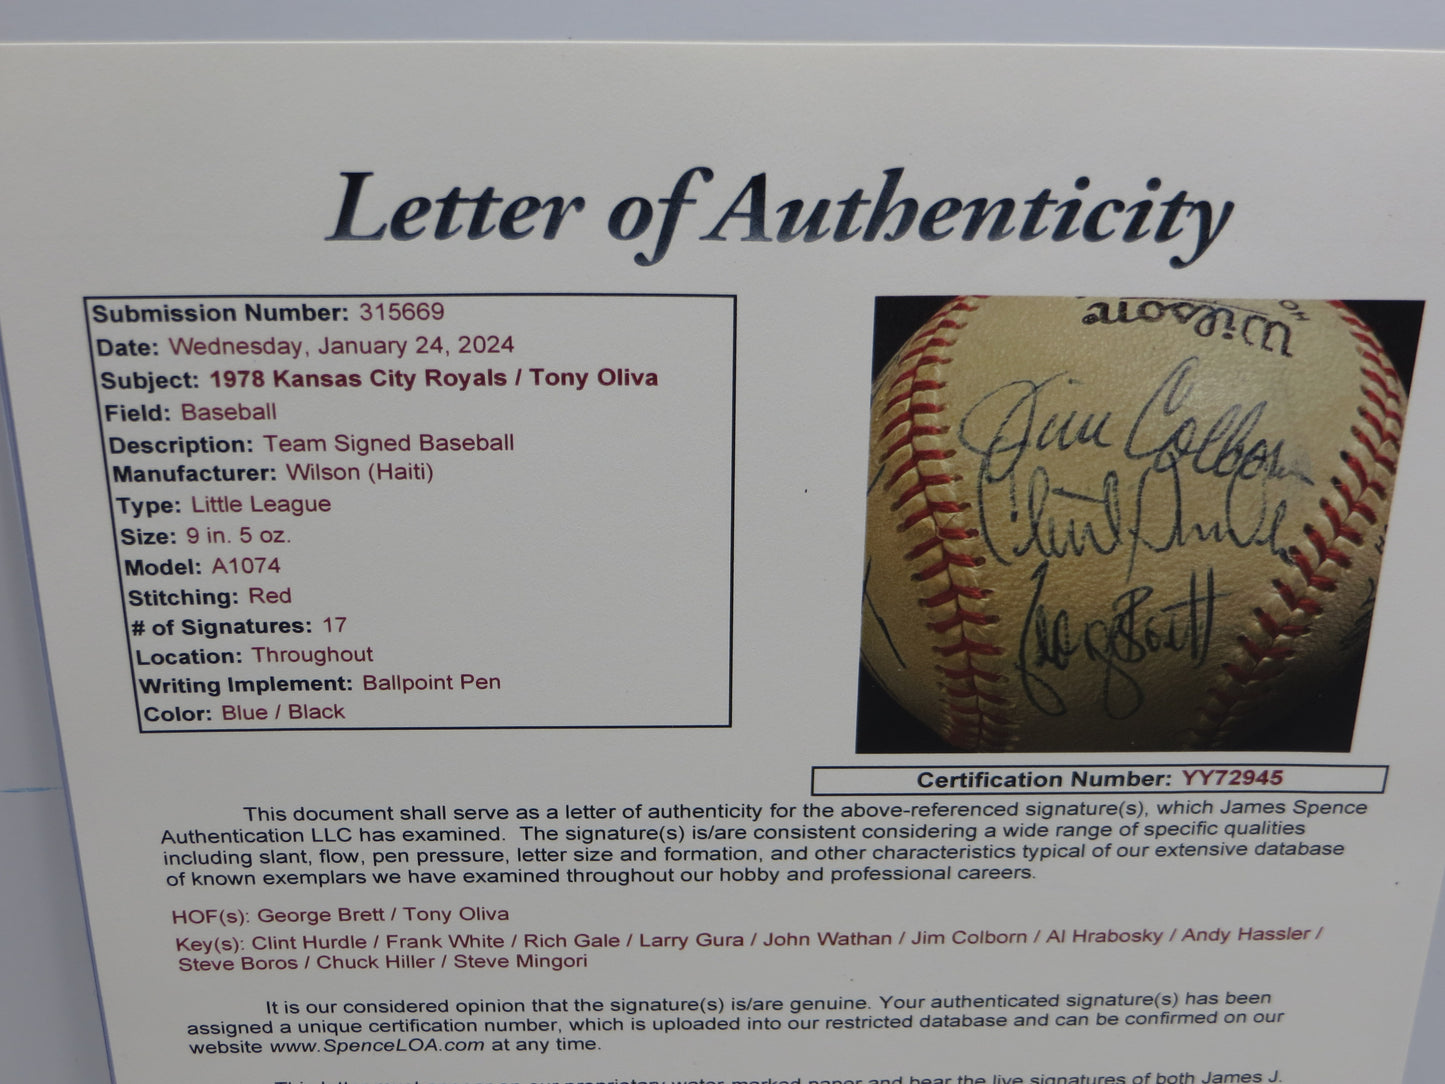 Letter of Authenticity
Submission Number: 315669
Date: Wednesday, January 24, 2024
Subject: 1978 Kansas City Royals / Tony Oliva
Field: Baseball
Description: Team Signed Baseball
Manufacturer: Wilson (Haiti)
Type: Little League
Size: 9 in. 5 oz.
Model: A1074
Stitching: Red
# of Signatures: 17
Location: Throughout
Writing Implement: Ballpoint Pen
Color: Blue / Black
Wilson
Jim Colborn
Clint Hurdle
George Brett
Certification Number: YY72945
This document shall serve as a letter of authenticity for the above-referenced signature(s), which James Spence
Authentication LLC has examined. The signature(s) is/are consistent considering a wide range of specific qualities
including slant, flow, pen pressure, letter size and formation, and other characteristics typical of our extensive database
of known exemplars we have examined throughout our hobby and professional careers.
HOF(s): George Brett / Tony Oliva
Key(s): Clint Hurdle / Frank White / Rich Gale / Larry Gura / John Wathan / Jim Colborn / Al Hrabosky / Andy Hassler /
Steve Boros / Chuck Hiller / Steve Mingori
It is our considered opinion that the signature(s) is/are genuine. Your authenticated signature(s) has been
assigned a unique certification number, which is uploaded into our restricted database and can be confirmed on our
website www.SpenceLOA.com at any time.
This letter must appear on our proprietary water-marked paper and bear the live signatures of both James J.